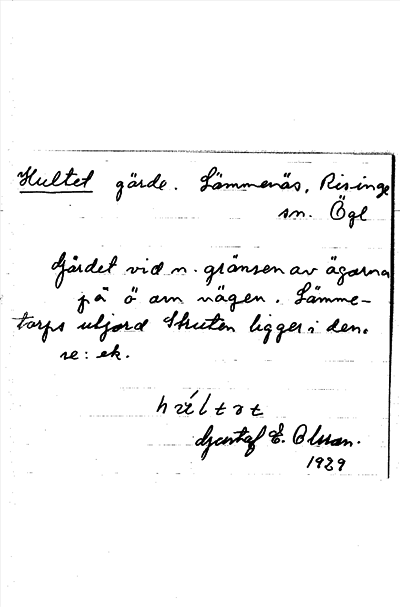 Hultet gärde. Lämmenäs, Risinge
sn. Ögl
Gärdet vid n. gränsen av ägorna
på ö om vägen. Lämme-
torps utjord Skuten ligger i den.
se: ek.
Gustaf E. Olsson.
1929